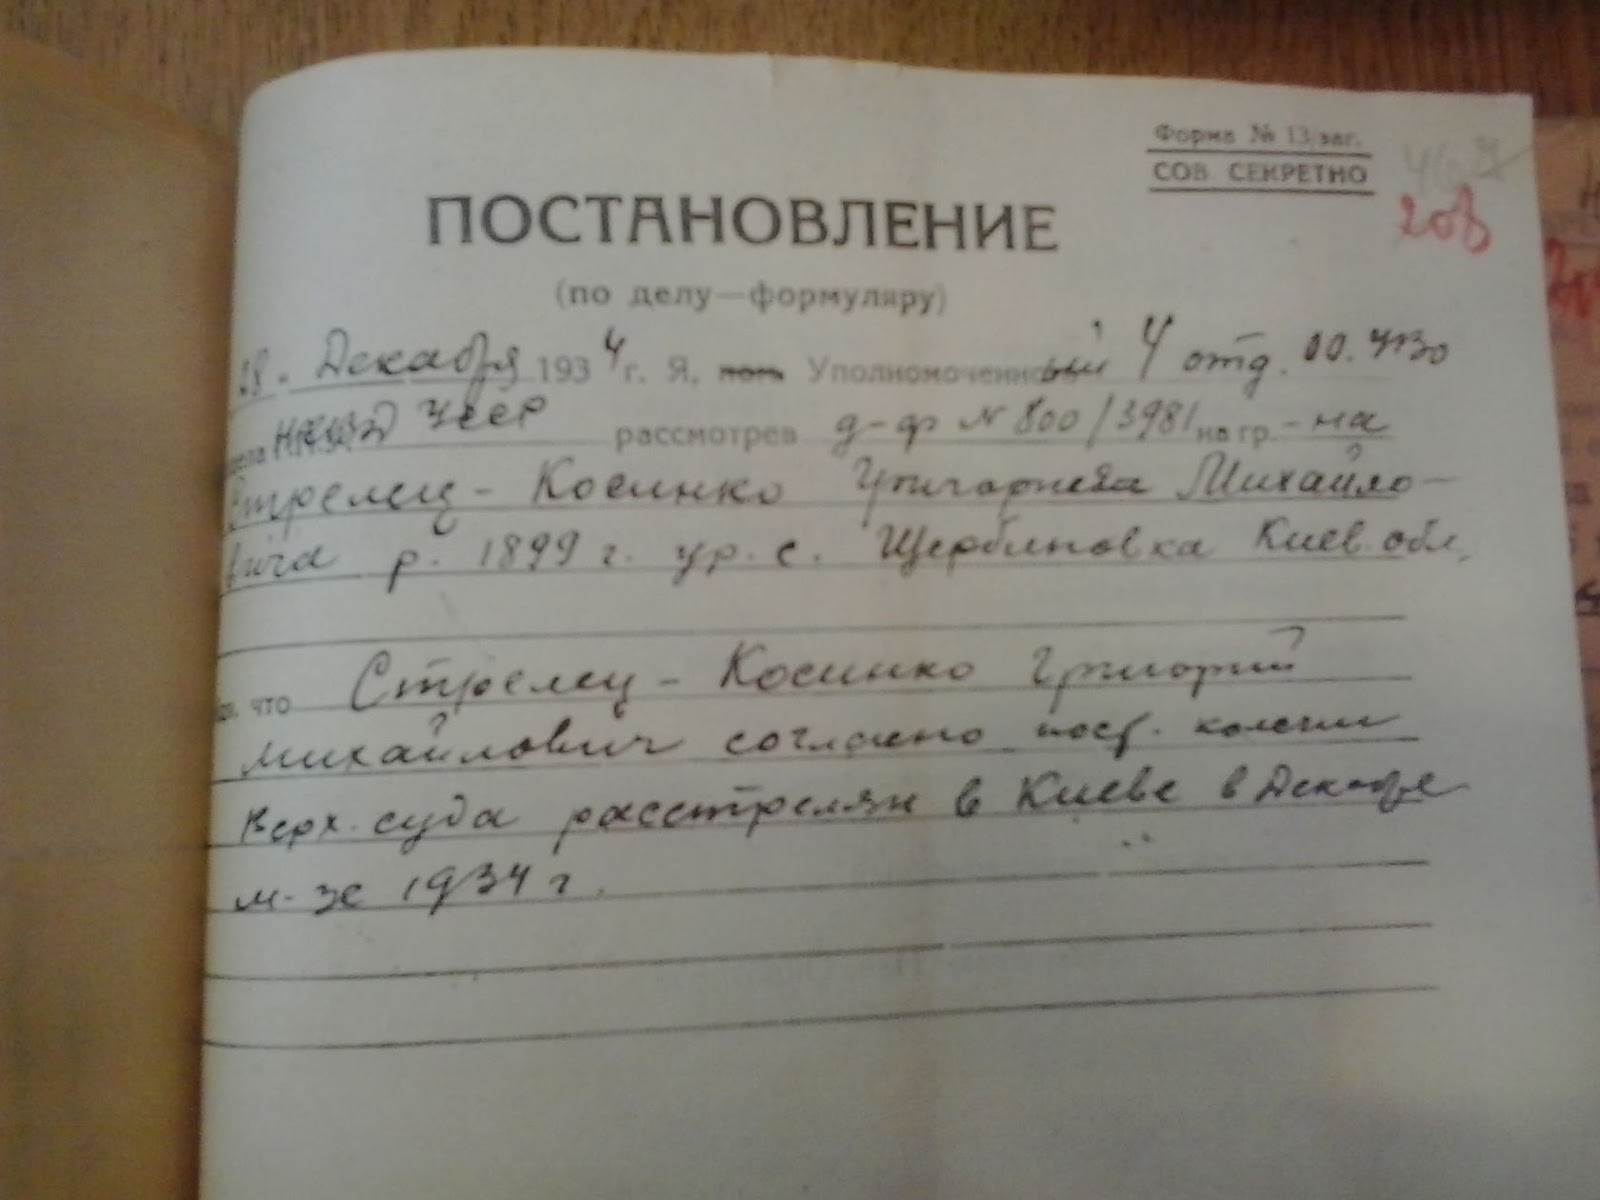 Форма № 13/заг.
СОВ. СЕКРЕТНО
208
ПОСТАНОВЛЕНИЕ
(по делу—формуляру)
28. Декабря 1934 г. Я, Уполномоченный 4 отд. ОО. УГБ
НКВД УССР рассмотрев д-ф № 800/3981 на гр.-на
Стрелец-Косинко Григория Михайло-
вича р. 1899 г. ур. с. Щербиновка Киев. обл.
что Стрелец-Косинко Григорий
Михайлович согласно пост. колегии
Верх. суда расстрелян в Киеве в Декабре
м-це 1934 г.